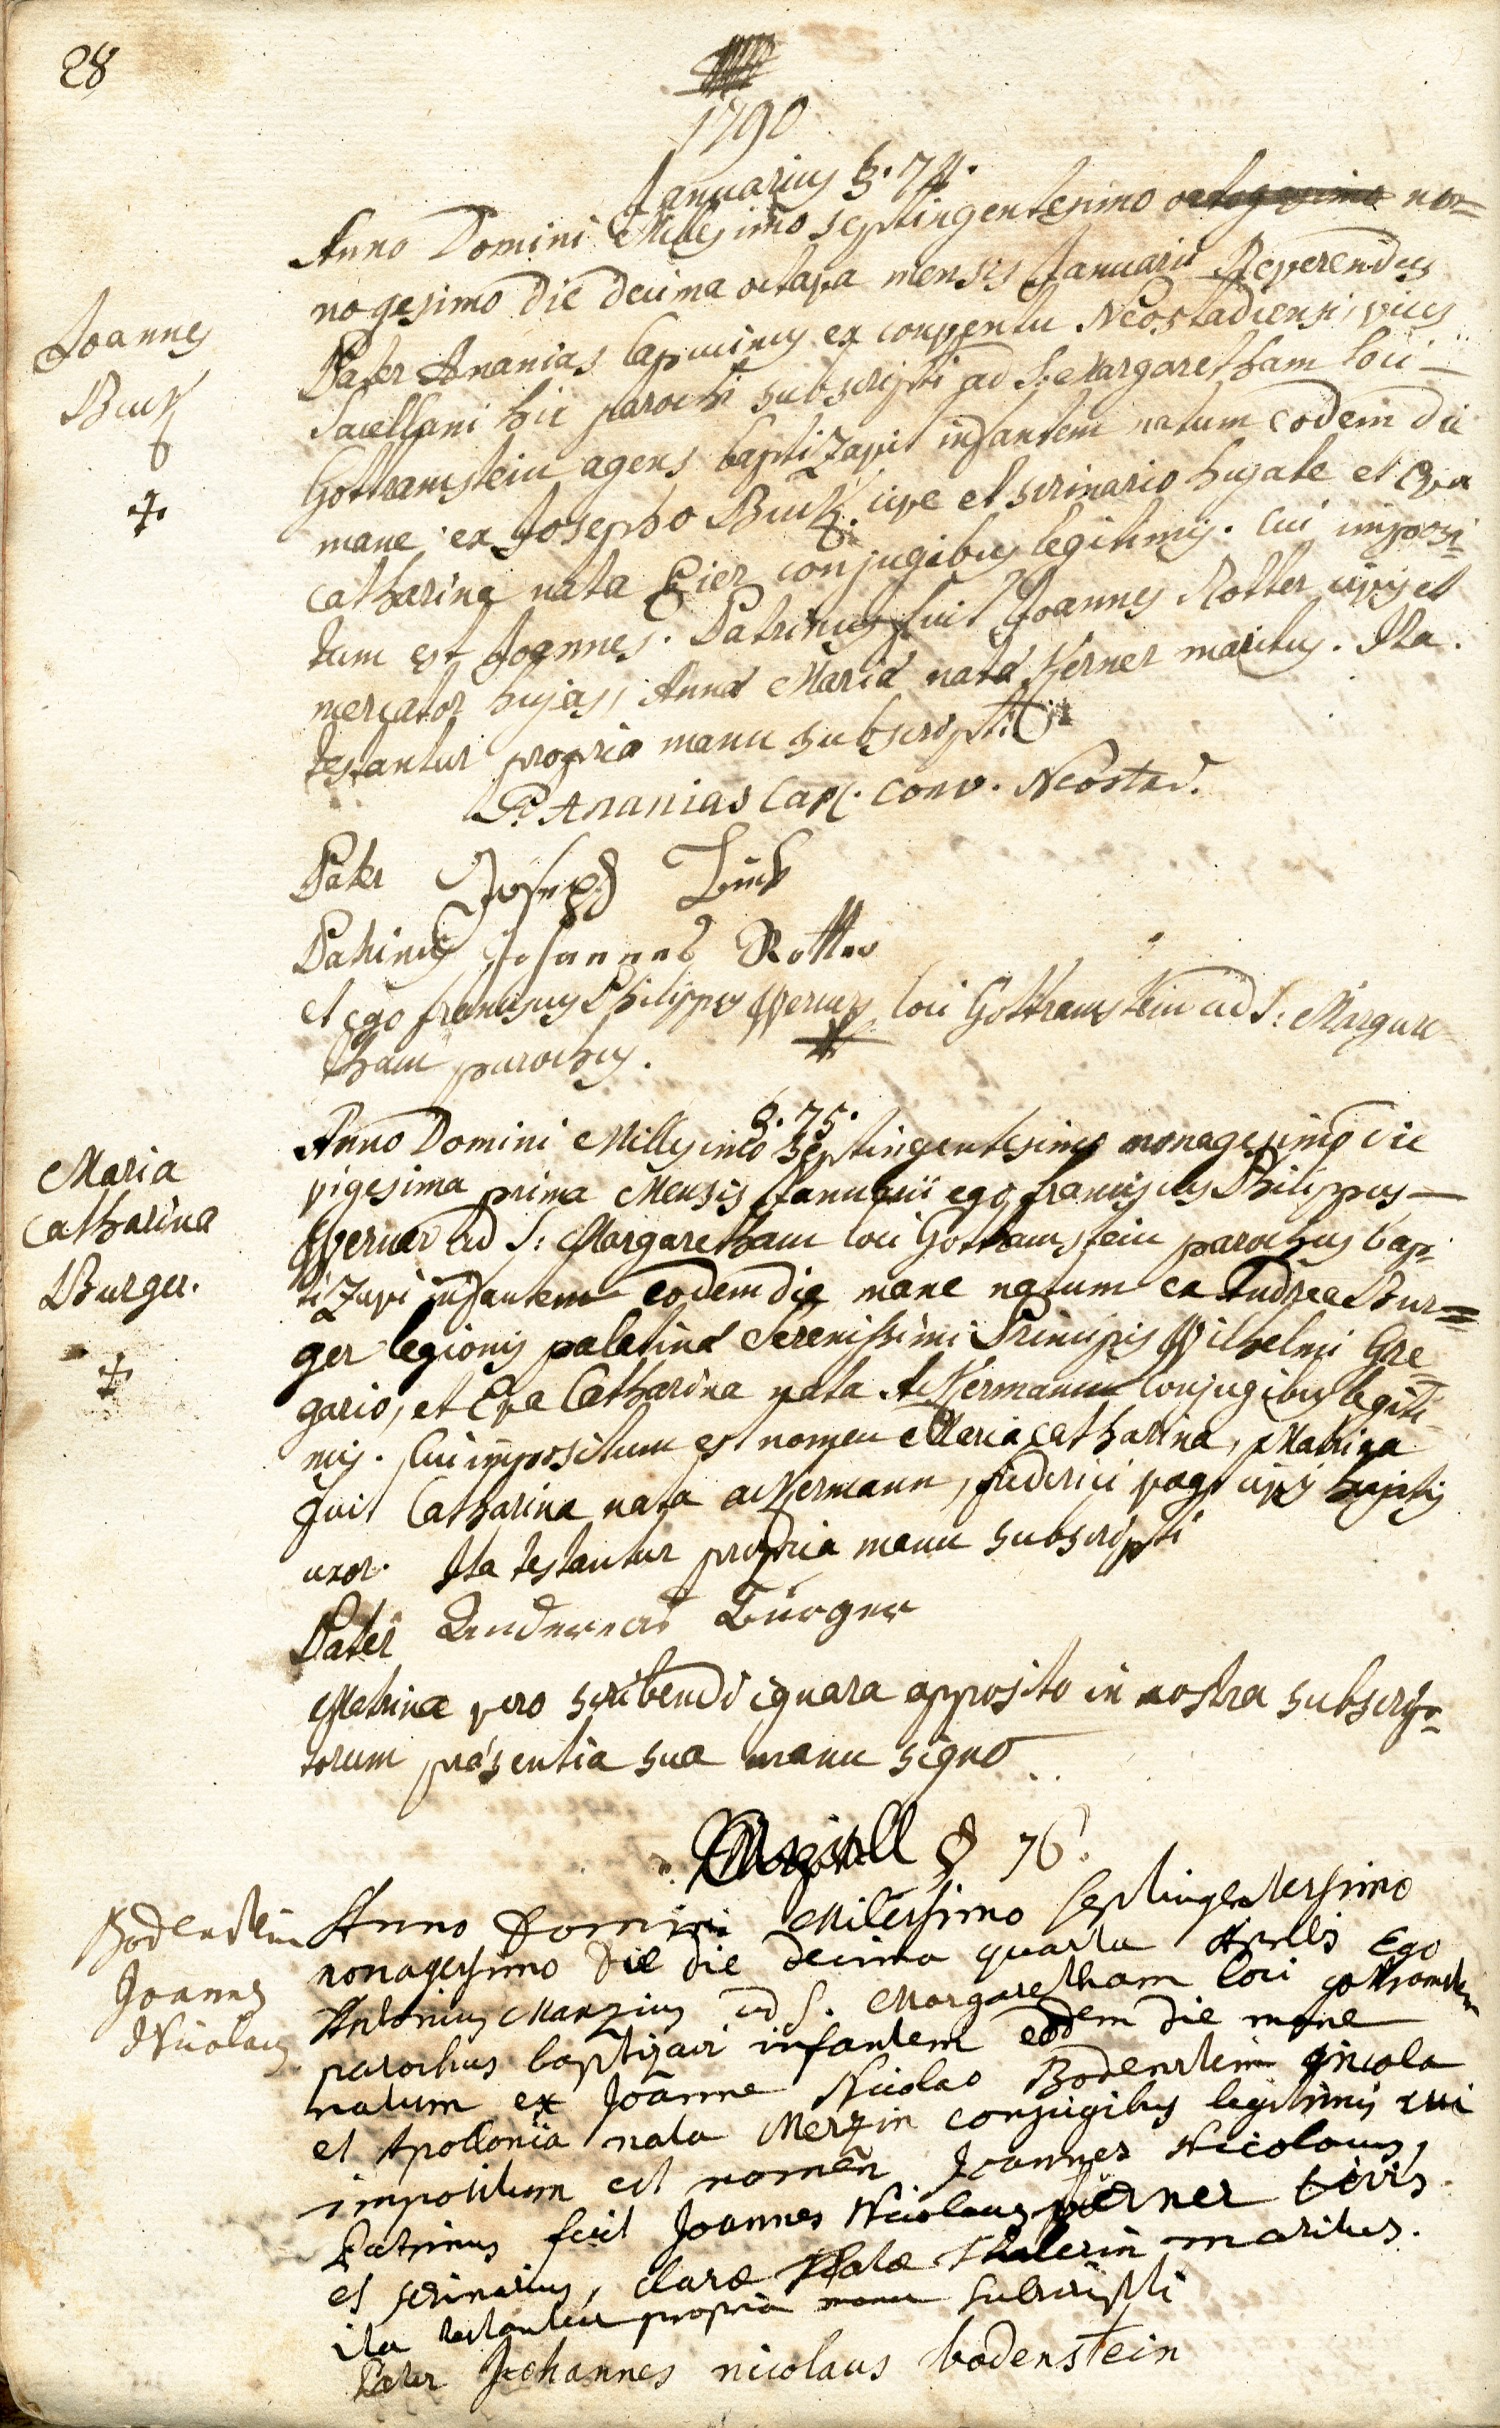 28
1790
Januarius §. 74.
Joannes
Buck
Anno Domini Millesimo septingentesimo octogesimo no=
nogesimo die decima octava mensis Januarii Reverendus
Pater Ananias Capucinus ex conventu Neostadiensi, vices
Sacellani hic parochi subscripti ad S: Margaretham loci
Gottramstein agens baptizavit infantem natum eodem die
mane ex Josepho Buck cive et scrinario hujate et Eva
Catharina nata Eier conjugibus legitimis. Cui imposi=
tum est Joannes. Patrinus fuit Joannes Rotter civis et
mercator hujas, Anna Maria nata Kerner maritus. Ita
testantur propria manu subscripti
P. Ananias Cap. Conv. Neostad.
Pater Joseph Buck
Patrinus Johannes Rotter
et ego franciscus Philippus Werner loci Gottramstein ad S: Margare
tham parochus.
§. 75.
Maria
Catharina
Burger.
Anno Domini Millesimo septingentesimo nonagesimo die
vigesima prima Mensis Januarii ego franciscus Philippus
Werner ad S: Margaretham loci Gottramstein parochus bap
tizavi infantem eodem die mane natum ex Andrea Bur=
ger legionis palatina Serenissimi Principis Wilhelmi Gre
gario, et Eva Catharina nata Ackermann Conjugibus legiti
mis. Cui impositum est nomen Maria Catharina, Matrina
fuit Catharina nata ackermann, friderici vogt civis hujatis
uxor. Ita testantur propria manu subscripti
Pater Andereas Bürger
Matrina vero scribendi ignara apposito in nostra subscrip=
torum præsentia sua manu signo
§ 76.
Bodenstein
Joannes
Nicolaus
Anno Domini Milessimo septingentessimo
nonagessimo die die decima quarta Aprilis Ego
Antonius Manzius ad S. Margaretham loci gottramstein
parochus baptizavi infantem eodem die mane
natum ex Joanne Nicolao Bodenstein incola
et Apollonia nata Merzin conjugibus legitimis cui
impositum est nomen Joannes Nicolaus,
Patrinus fuit Joannes Nicolaus Werner civis
et scrinarius, claræ natæ Thalerin maritus.
ita testantur propria manu subscripti
Pater Johannes nicolaus bodenstein